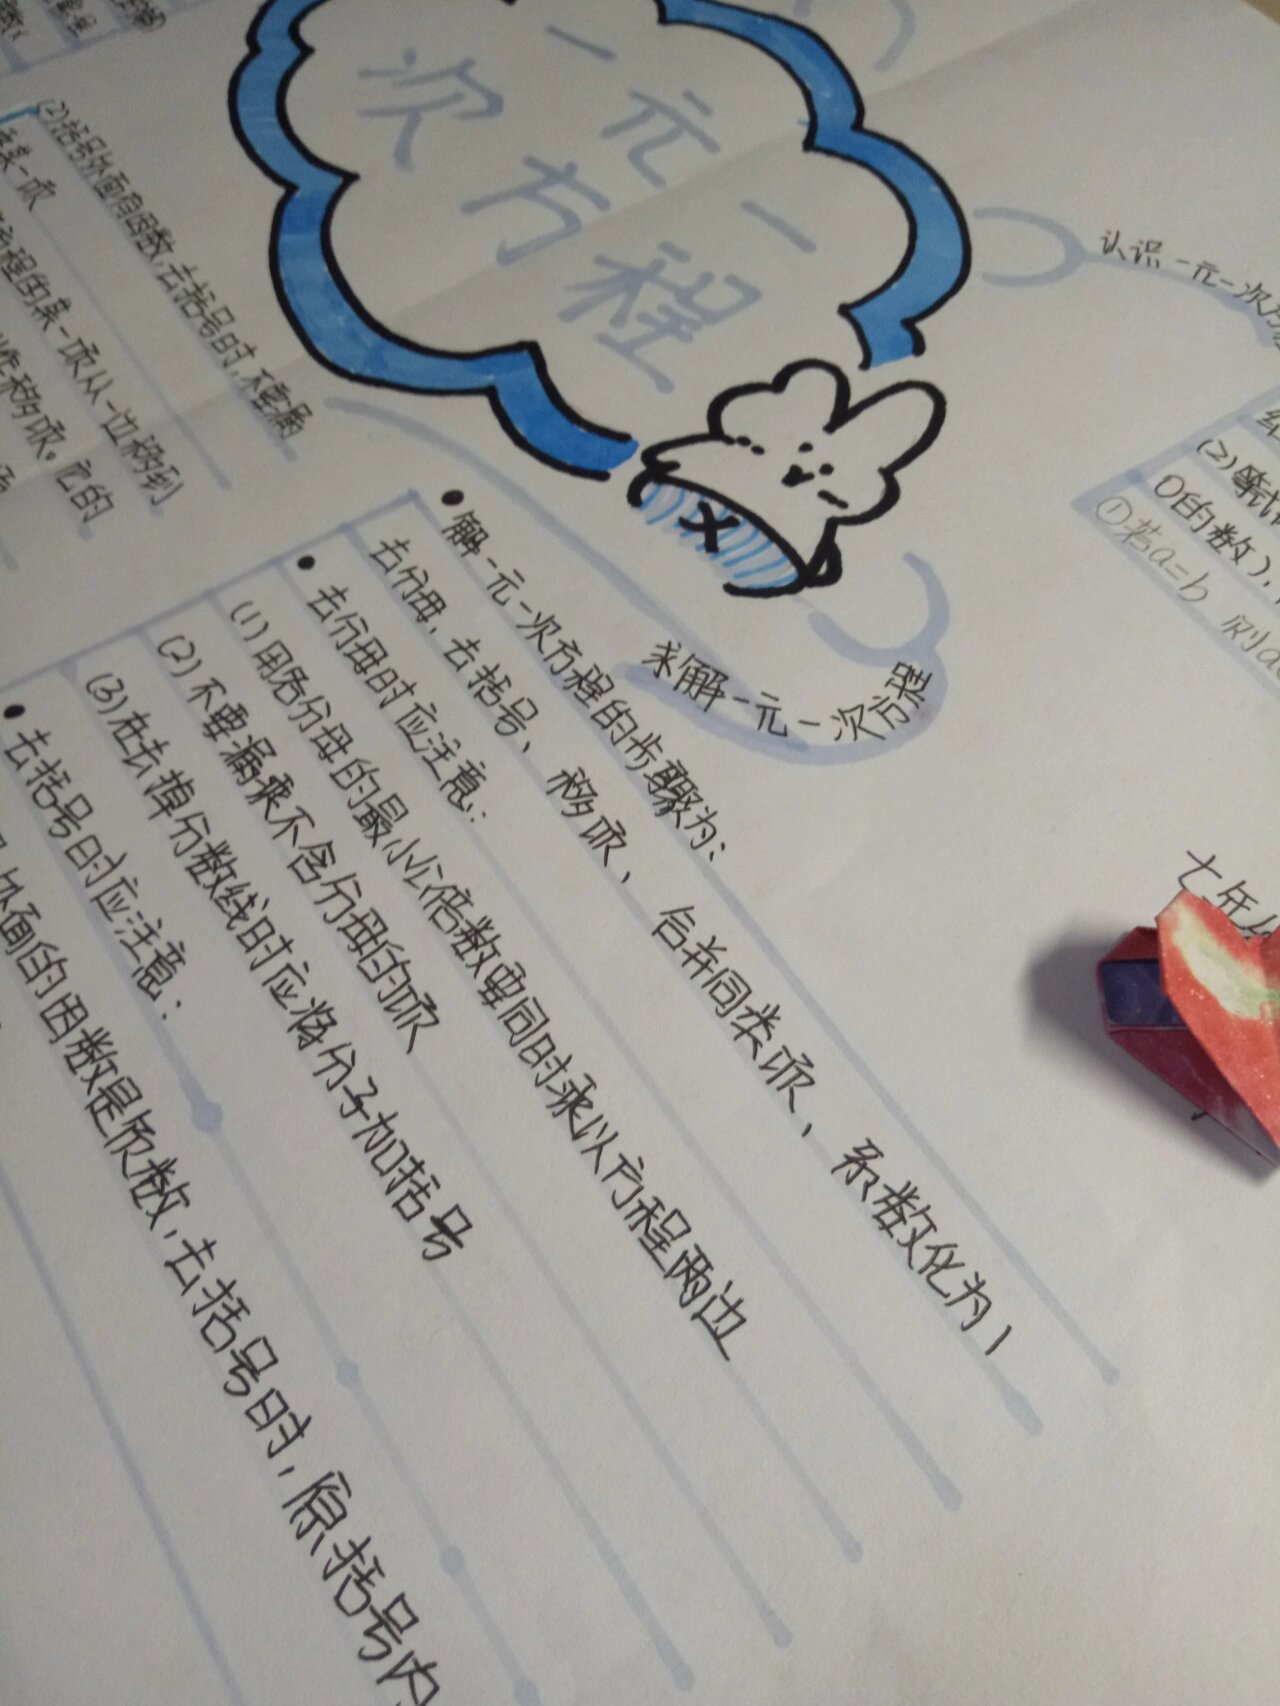 一元一
次方程
认识一元一次方
(2)等式
0的数),
①若a=b 则a
求解一元一次方程
七年
解一元一次方程的步骤为:
去分母、去括号、移项、合并同类项、系数化为1
去分母时应注意:
(1)用各分母的最小公倍数要同时乘以方程两边
(2)不要漏乘不含分母的项
(3)在去掉分数线时应将分子加括号
去括号时应注意:
外面的因数是质数,去括号时,原括号内
(2)括号外面有因数,去括号时,不要漏
某一项
方程的某一项从一边移到
移项。它的